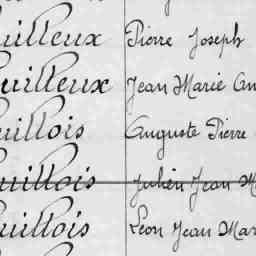 uilleux Pierre Joseph
uilleux Jean Marie
uillois Auguste Pierre
uillois Julien Jean
uillois Léon Jean Mar